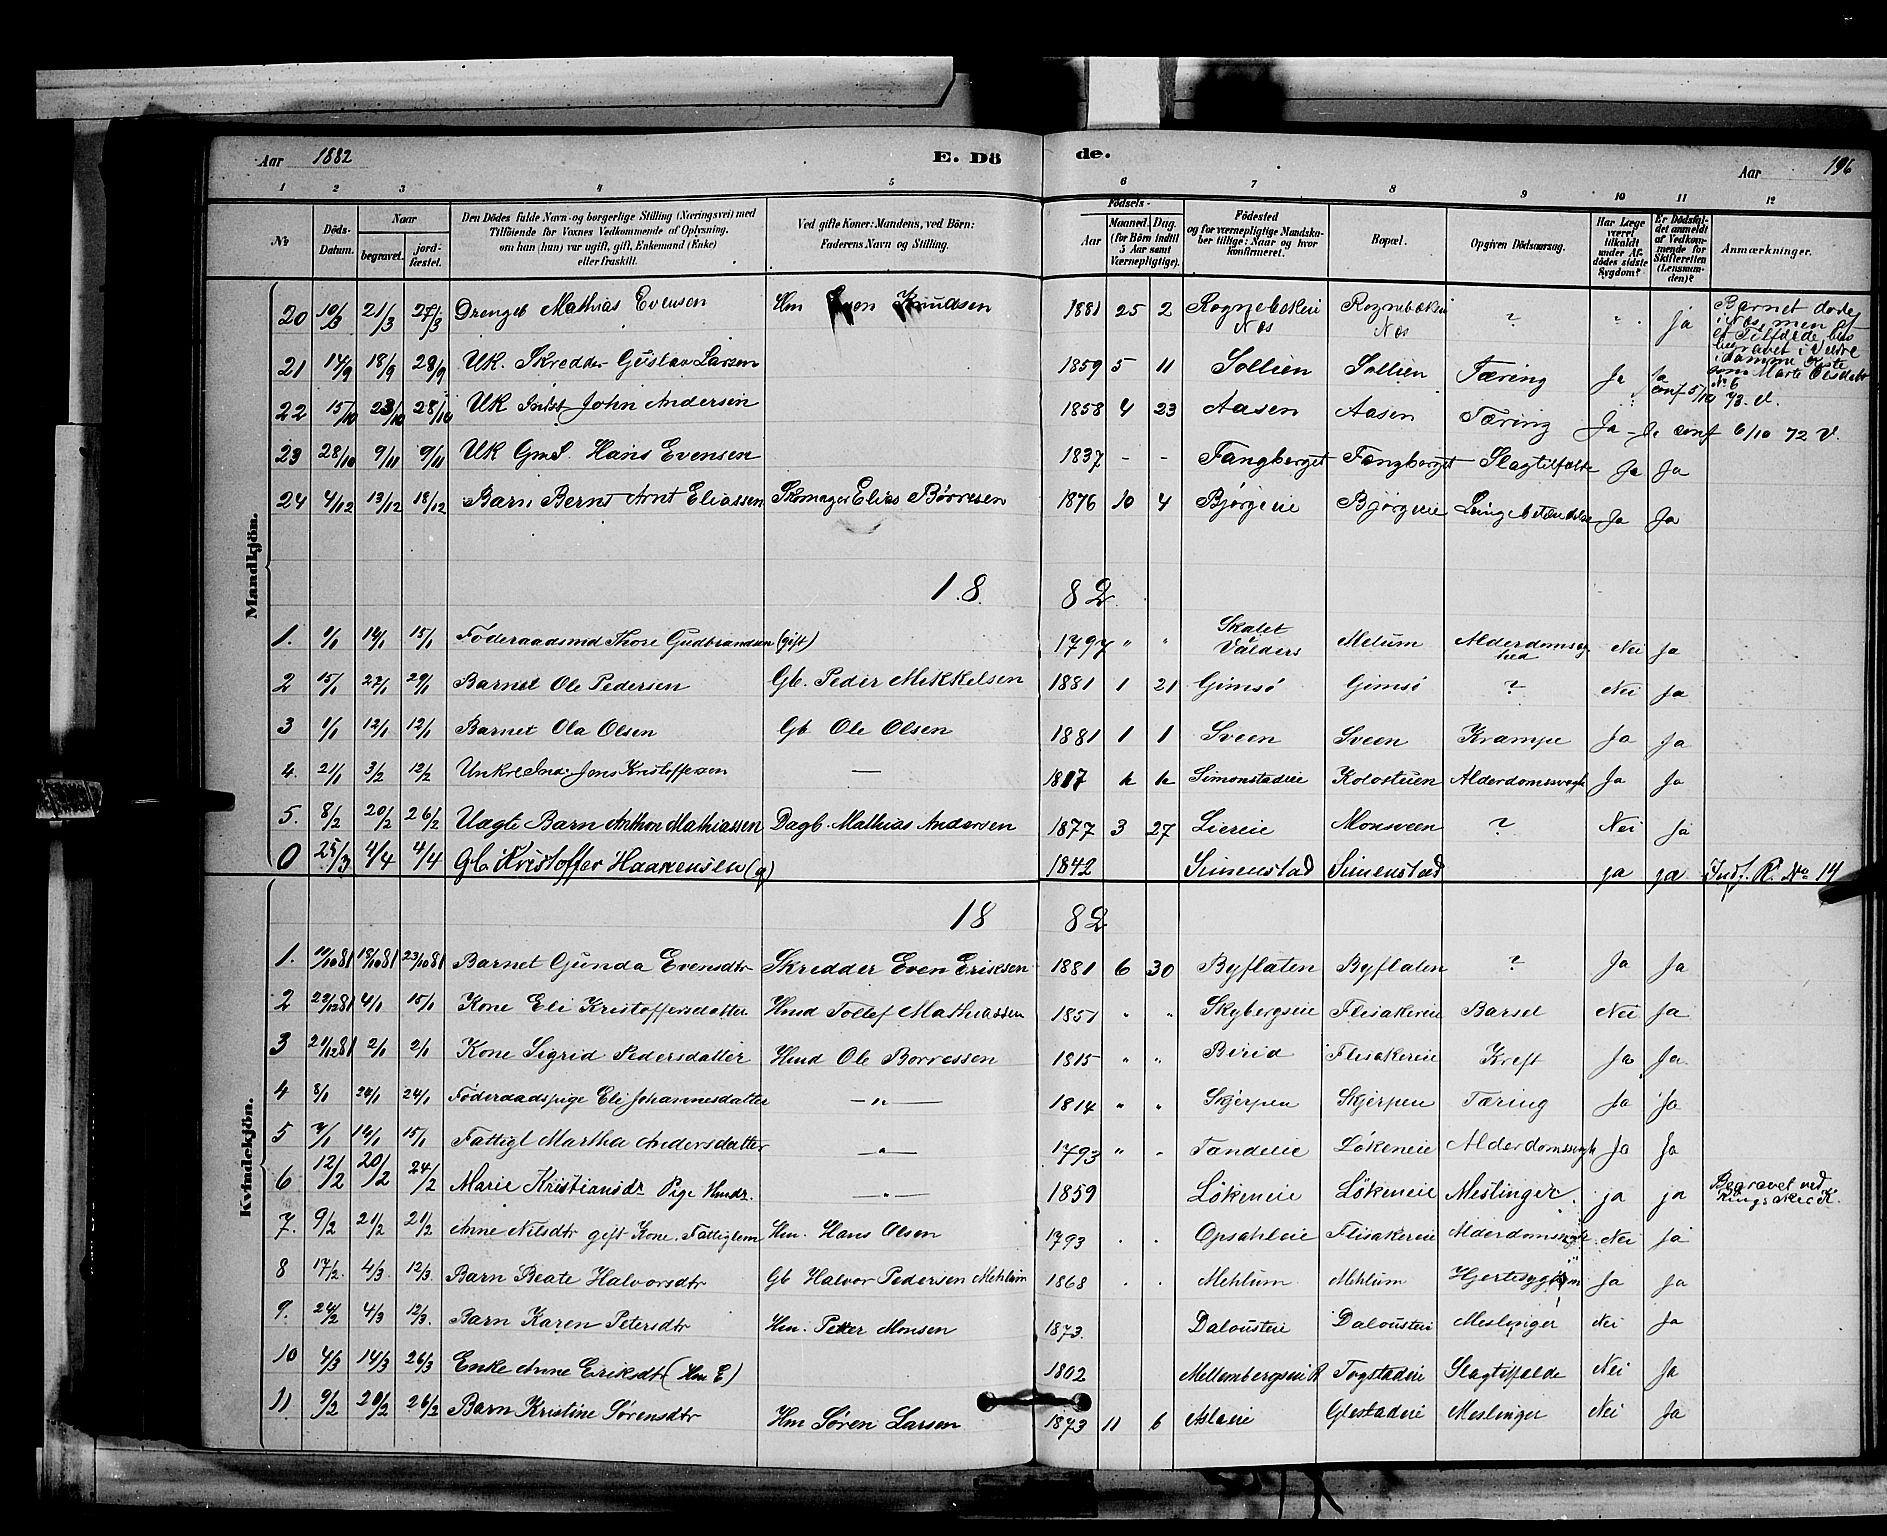 Aar 1882 E. Dö de. Aar 196
1 2 3 4 5 6 7 8 9 10 11 12
No Döds-Datum. Naar begravet. jord-fæstet. Den Dödes fulde Navn og borgerlige Stilling (Næringsvei) med Tilföiende for Voxnes Vedkommende af Oplysning. om han (hun) var ugift, gift, Enkemand (Enke) eller fraskilt. Ved gifte Koner: Mandens, ved Börn: Faderens Navn og Stilling. Födsels- Aar Maaned. Dag. (for Börn indtil 5 Aar samt Værnepligtige). Födested og for værnepligtige Mandskaber tillige: Naar og hvor konfirmeret. Bopæl. Opgiven Dödsaarsag. Har Læge været tilkaldt under Afdödes sidste Sygdom? Er Dödsfaldet anmeldt af Vedkommende for Skifteretten (Lensmanden)? Anmærkninger.
Mandkjön.
20 10/3 21/3 27/3 Drengeb Mathias Evensen Hm Even Knudsen 1881 25 2 Rognebækeie Næs Rognebækeie Næs ? " Ja Barnet döde i Næs, men
21 14/9 18/9 28/9 UK. Skredder Gustav Larsen 1859 5 11 Sollien Sollien Tæring Ja Ja conf 5/10 73. V.
22 15/10 23/10 28/10 UK Indst John Andersen 1858 4 23 Aasen Aasen Tæring Ja Ja conf 6/10 72 V.
23 28/10 9/11 9/11 UK GmS. Hans Evensen 1837 - - Fangberget Fangberget Slagtilfælde Ja Ja
24 4/12 13/12 18/12 Barn Bernt Arnt Eliassen Skomager Elias Börresen 1876 10 4 Bjørgeie Bjørgeie Lungebetændelse Ja Ja
18 82
1. 9/1 14/1 15/1 Föderaadsmd Thore Gudbrandsen (gift) 1797 " " Skatet Valders Melum Alderdomssvaghed Nei Ja
2 15/1 22/1 29/1 Barnet Ole Pedersen Gb. Peder Mikkelsen 1881 1 21 Gimsø Gimsø ? Nei Ja
3 1/1 12/1 12/1 Barnet Ola Olsen Gb Ole Olsen 1881 1 1 Sveen Sveen Krampe Ja Ja
4. 21/1 3/2 12/2 Unkrl Ind. Jens Kristoffersen — 1817 " " Simonstadeie Kolostuen Alderdomssvagh Ja Ja
5. 8/2 20/2 26/2 Uægte Barn Anthon Mathiassen Dagb. Mathias Andersen 1877 3 27 Liereie Monsveen ? Nei Ja
0 25/3 4/4 4/4 Gb. Kristoffer Haakensen (g) 1842 Simenstad Simenstad ja ja Indf. R. No 14
Kvindekjön.
18 82
1. 11/10 81 19/10 81 23/10 81 Barnet Gunda Evensdtr Skredder Even Eriksen 1881 6 30 Byflaten Byflaten ? Ja Ja
2 23/12 81 4/1 15/1 Kone Eli Kristoffersdatter Hmd Tollef Mathiassen 1851 " " Skybergseie Flisakereie Barsel Nei Ja
3 21/12 81 2/1 2/1 Kone Sigrid Pedersdatter Hmd Ole Borressen 1815 " " Birid Flisakereie Kreft Ja Ja
4 8/1 24/1 24/1 Föderaadspige Eli Johannesdatter — " — 1814 " " Skjerpen Skjerpen Tæring Ja Ja
5 7/1 14/1 15/1 Fattigl Martha Andersdatter — " — 1793 " " Tandeeie Løkeneie Alderdomssvagh Ja Ja
6 12/2 20/2 24/2 Marie Kristiansdr Pige Hmdr. — " — 1859 Løkeneie Løkeneie Meslinger. ja ja Begravet ved Ringsaker K.
7. 9/2 21/2 21/2 Anne Nilsdtr gift Kone. Fattiglem Hm. Hans Olsen 1793 . . Opsahleie Flisakereie Alderdomssvgh Nei Ja
8 17/2. 4/3 12/3 Barn Beate Halvorsdtr Gb Halvor Pedersen Mehlum 1868 . . Mehlum Mehlum Hjertesygdom Ja Ja
9. 24/2 4/3 12/3. Barn Karen Petersdtr Hm. Petter Monsen 1873. Dalousteie Daloustein Meslinger Nei Ja
10 4/3 14/3 26/3 Enke Anne Eriksdtr (Hm E) 1802 Mellembergseie R Togstadeie Slagtilfælde Nei Ja
11 9/2 20/2 26/2 Barn Kristine Sørensdtr Hm Søren Larsen 1873 11 6 Aslaeie Glestadeie Meslinger Nei Ja